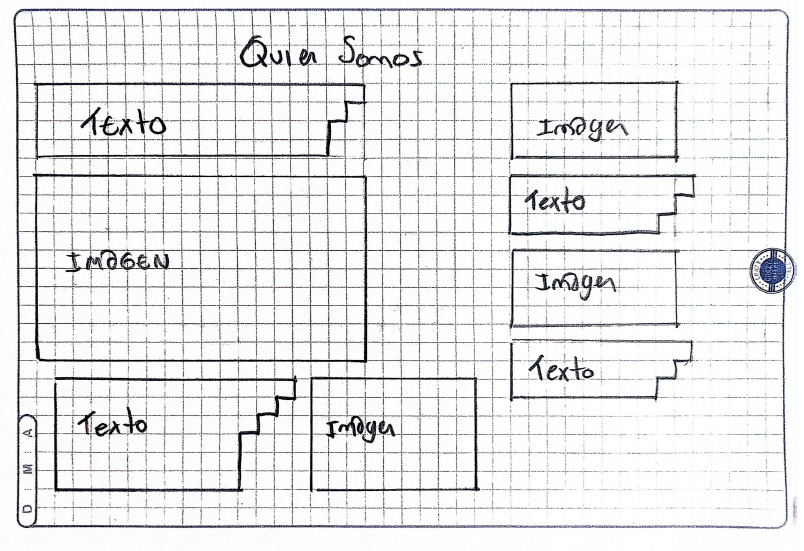 Quien Somos
Texto
IMAGEN
Texto
Imagen
Imagen
Texto
Imagen
Texto
D M A